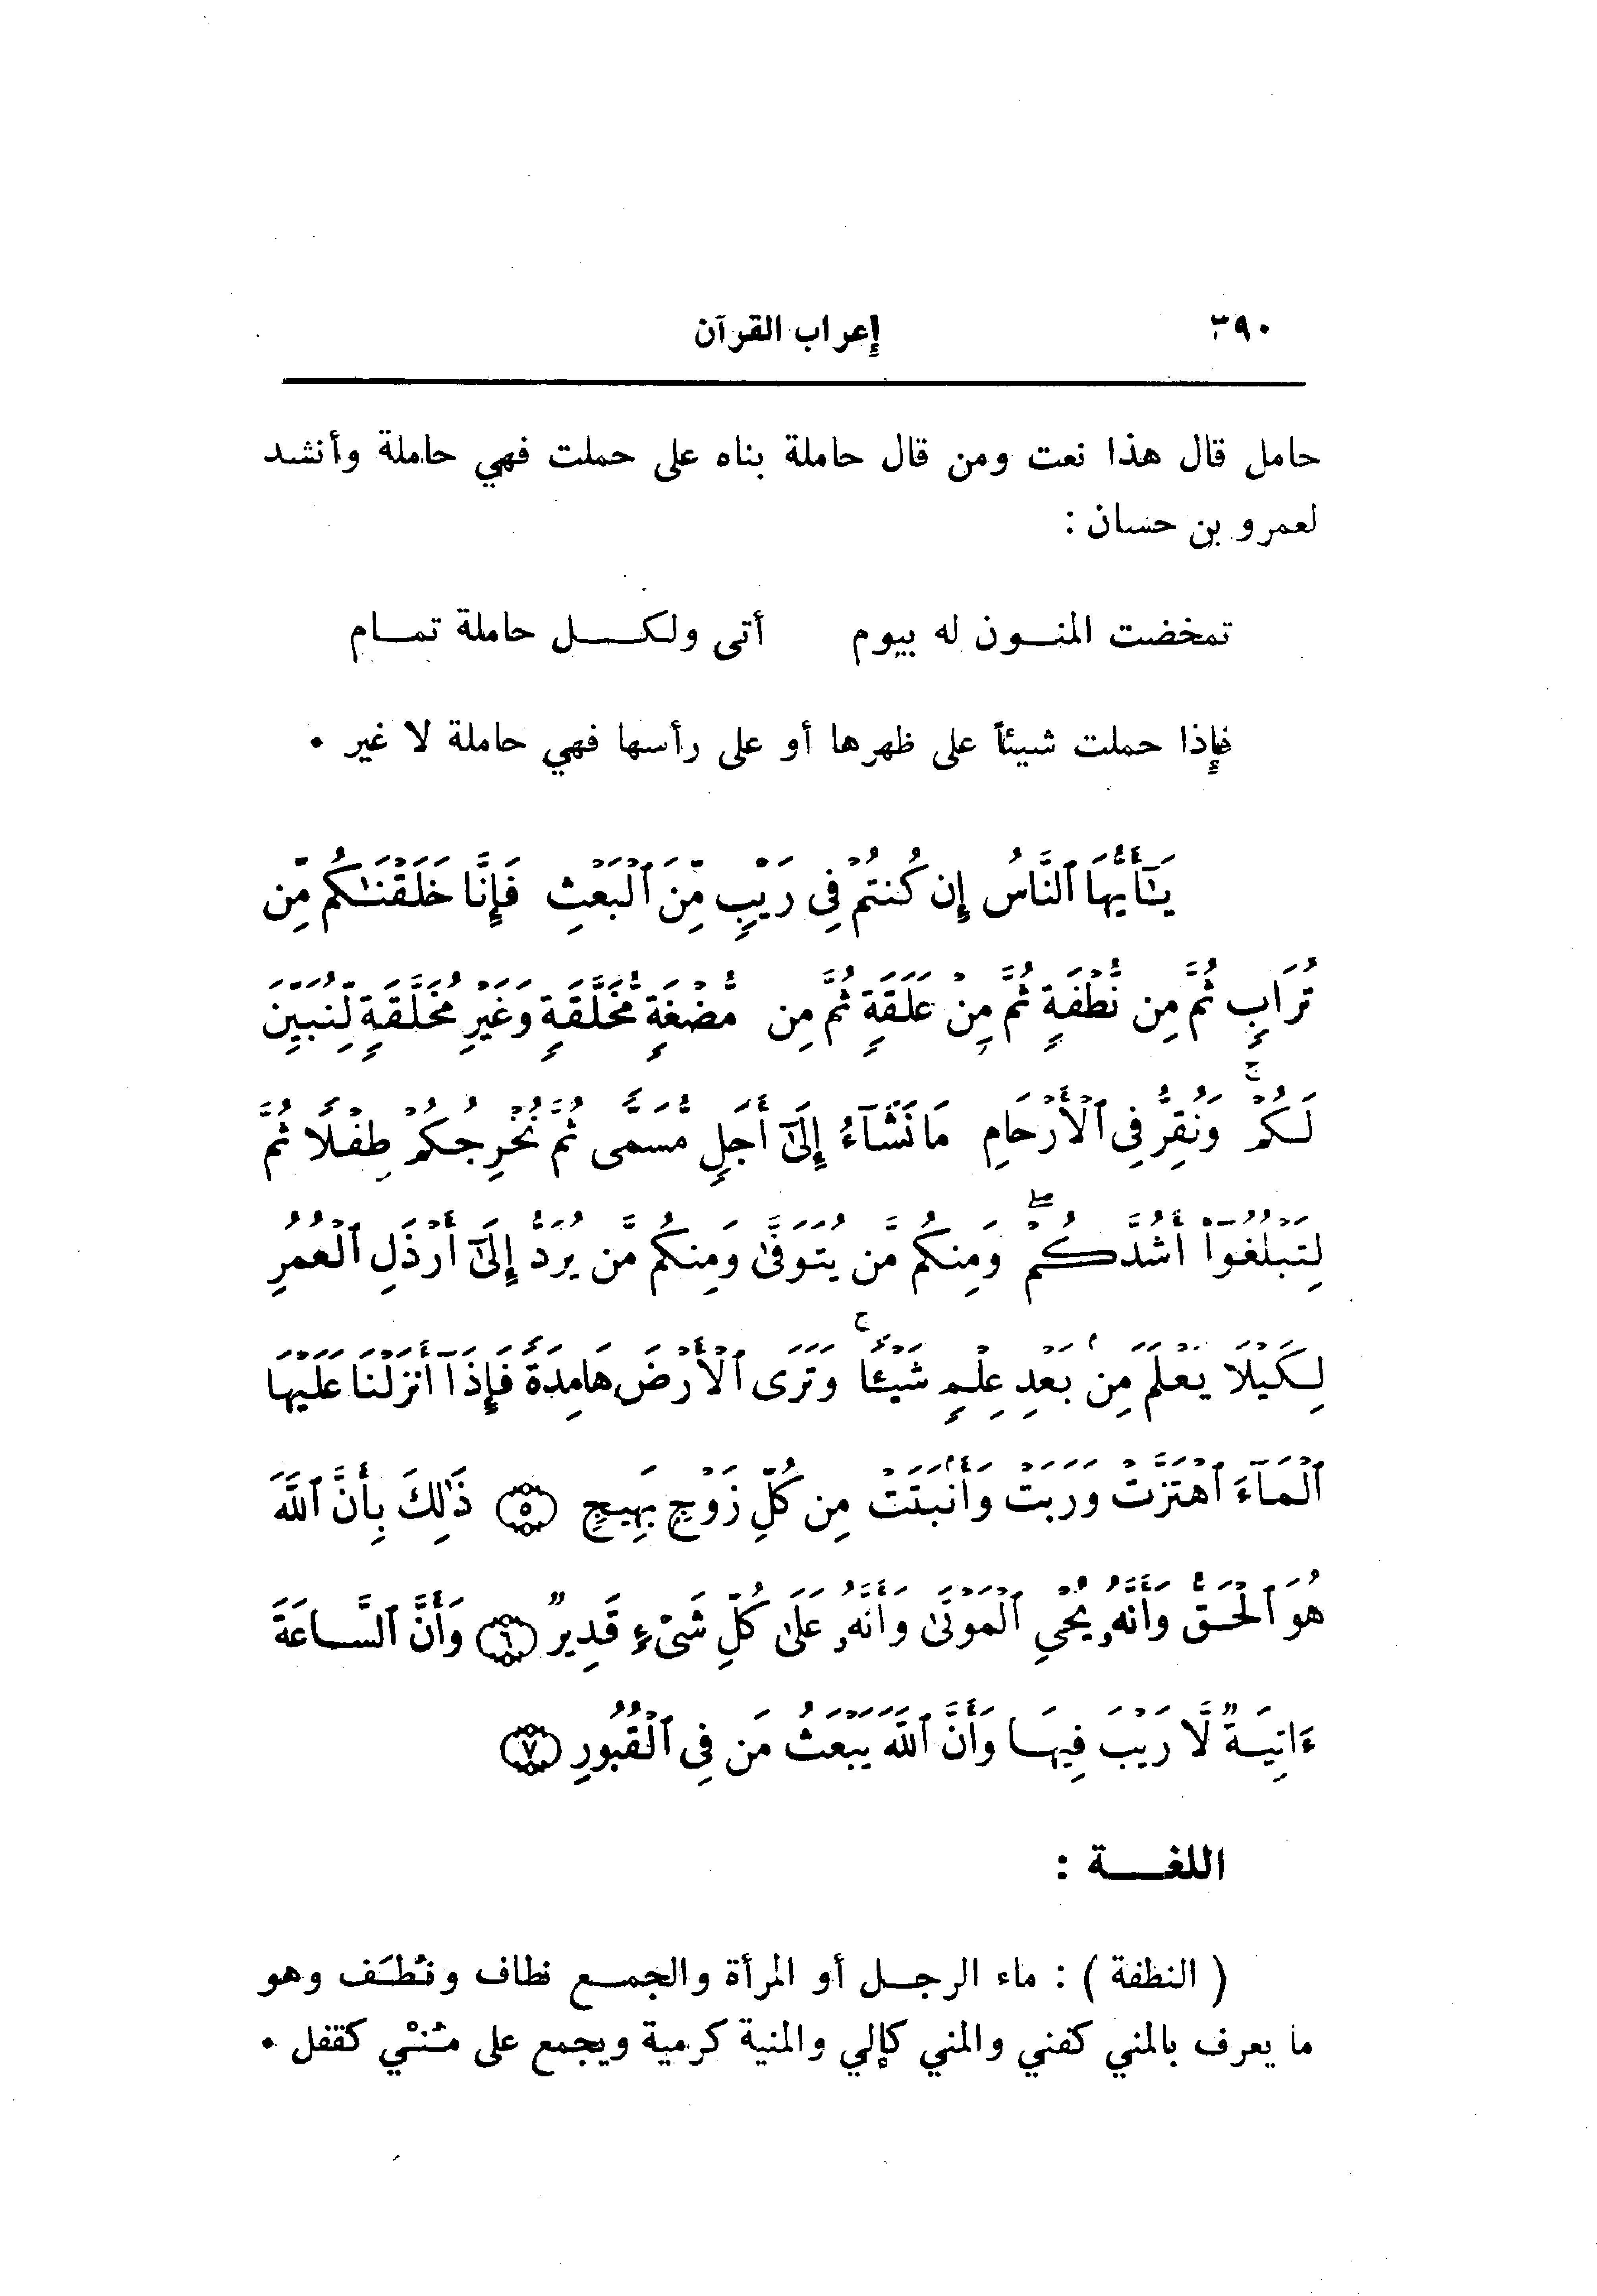 ٣٩٠ إعراب القرآن
حامل قال هذا نعت ومن قال حاملة بناه على حملت فهي حاملة وأنشد
لعمرو بن حسان :
تمخضت المنـــون له بيوم أتى ولكـــــل حاملة تمـــام
فإذا حملت شيئاً على ظهرها أو على رأسها فهي حاملة لا غير ٠
يَـٰٓأَيُّهَا ٱلنَّاسُ إِن كُنتُمْ فِى رَيْبٍ مِّنَ ٱلْبَعْثِ فَإِنَّا خَلَقْنَـٰكُم مِّن
تُرَابٍ ثُمَّ مِن نُّطْفَةٍ ثُمَّ مِنْ عَلَقَةٍ ثُمَّ مِن مُّضْغَةٍ مُّخَلَّقَةٍ وَغَيْرِ مُخَلَّقَةٍ لِّنُبَيِّنَ
لَكُمْ ۚ وَنُقِرُّ فِى ٱلْأَرْحَامِ مَا نَشَآءُ إِلَىٰٓ أَجَلٍ مُّسَمًّى ثُمَّ نُخْرِجُكُمْ طِفْلًا ثُمَّ
لِتَبْلُغُوٓا۟ أَشُدَّكُمْ ۖ وَمِنكُم مَّن يُتَوَفَّىٰ وَمِنكُم مَّن يُرَدُّ إِلَىٰٓ أَرْذَلِ ٱلْعُمُرِ
لِكَيْلَا يَعْلَمَ مِنۢ بَعْدِ عِلْمٍ شَيْـًٔا ۚ وَتَرَى ٱلْأَرْضَ هَامِدَةً فَإِذَآ أَنزَلْنَا عَلَيْهَا
ٱلْمَآءَ ٱهْتَزَّتْ وَرَبَتْ وَأَنۢبَتَتْ مِن كُلِّ زَوْجٍۭ بَهِيجٍ ٥ ذَٰلِكَ بِأَنَّ ٱللَّهَ
هُوَ ٱلْحَقُّ وَأَنَّهُۥ يُحْىِ ٱلْمَوْتَىٰ وَأَنَّهُۥ عَلَىٰ كُلِّ شَىْءٍ قَدِيرٌ ٦ وَأَنَّ ٱلسَّاعَةَ
ءَاتِيَةٌ لَّا رَيْبَ فِيهَا وَأَنَّ ٱللَّهَ يَبْعَثُ مَن فِى ٱلْقُبُورِ ٧
اللغـــــة :
( النطفة ) : ماء الرجـــل أو المرأة والجمـــع نطاف ونُطَف وهو
ما يعرف بالمني كفني والمني كإلي والمنية كرمية ويجمع على مُنْي كقفل ٠